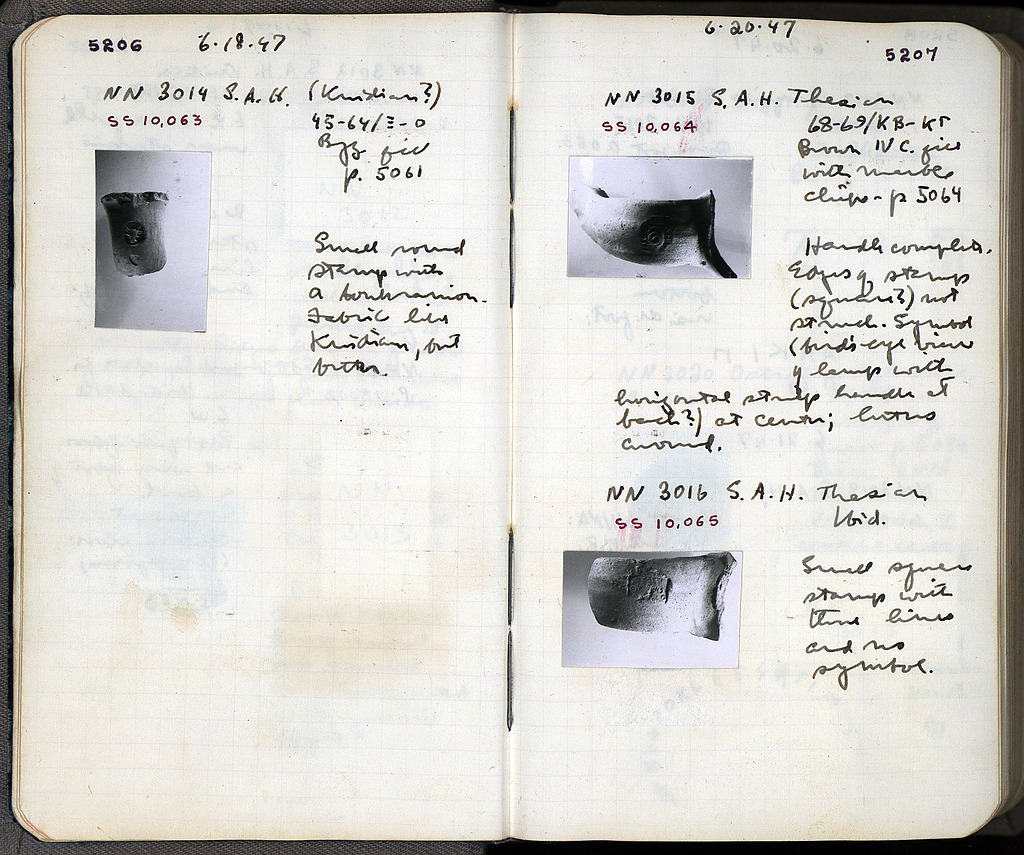 5206 6-18-47
NN 3014 S.A.H. (Knidian?)
SS 10,063 45-64/Ξ-Ο
Byz fill
p. 5061
Small round
stamp with
a boukranion.
Fabric like
Knidian, but
better.
6-20-47
5207
NN 3015 S.A.H. Thasian
SS 10,064 68-69/ΚΒ-ΚΓ
Brown IV C. fill
with marble
chips - p 5064
Handle complete.
Edges of stamp
(square?) not
struck. Symbol
(bird's-eye view
of lamp with
horizontal strap handle at
back?) at center; letters
around.
NN 3016 S.A.H. Thasian
SS 10,065 Ibid.
Small square
stamp with
three lines
and no
symbol.